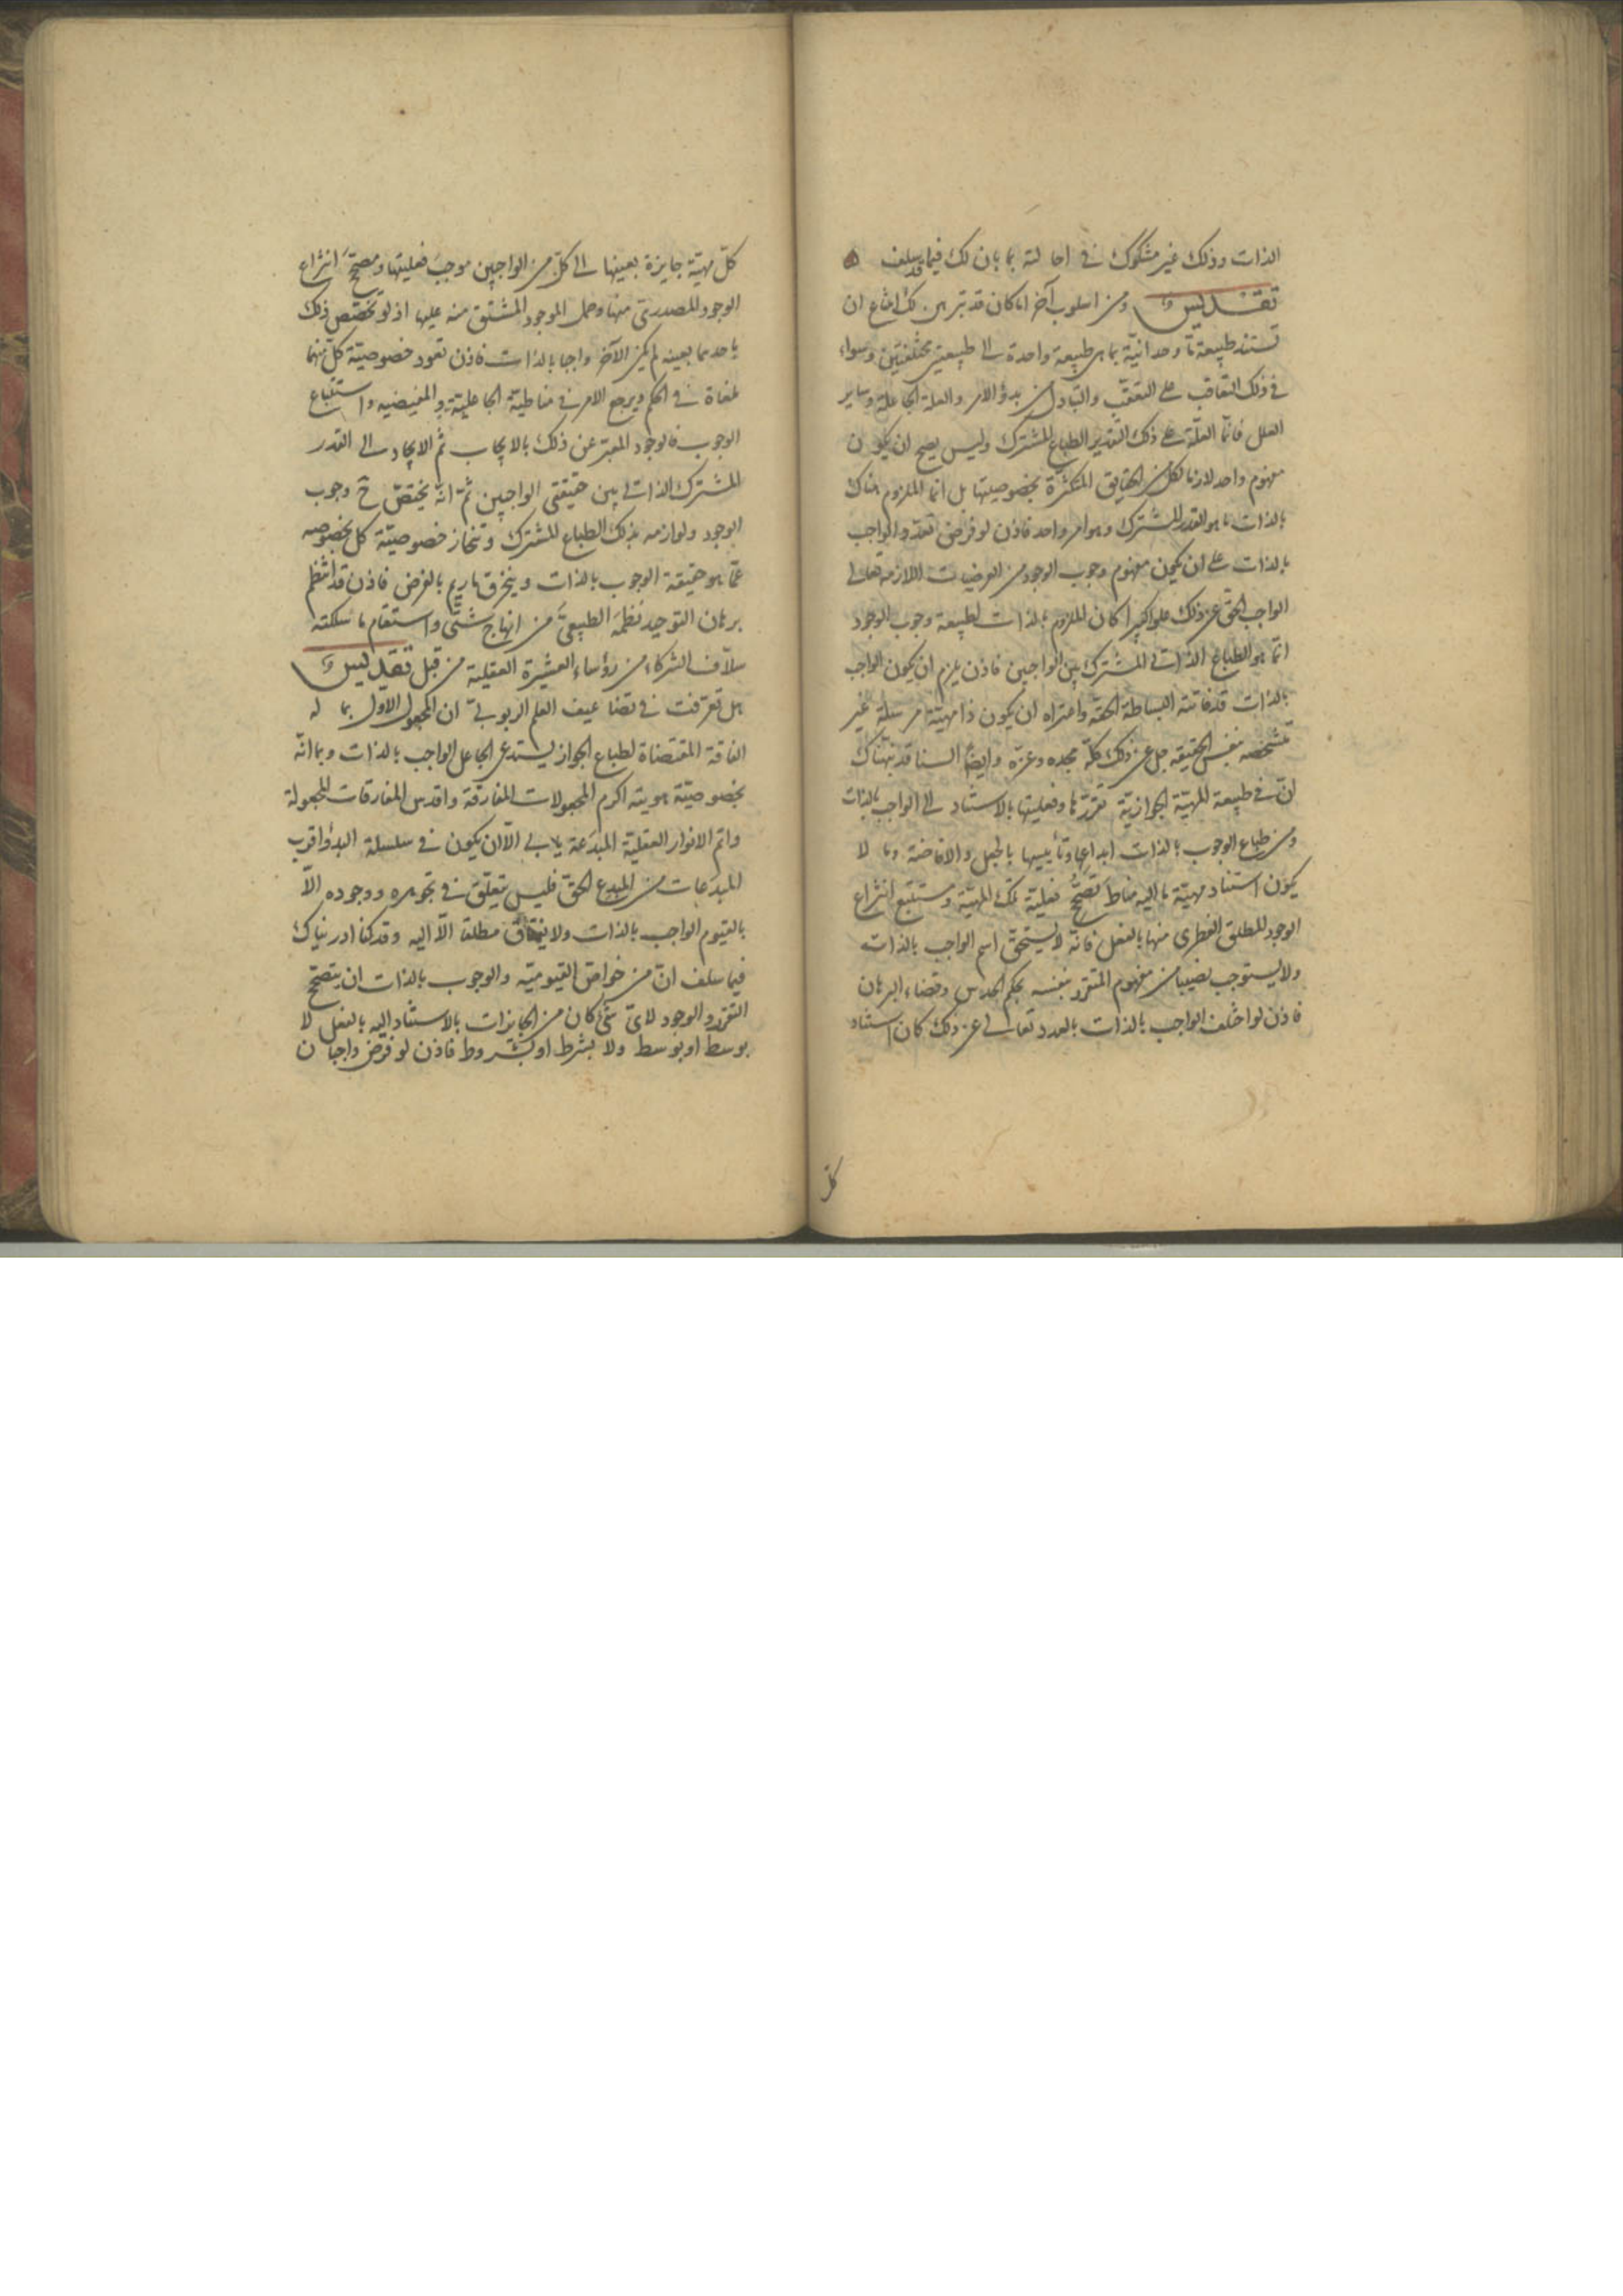 الذات وذلك غير مشكوك في احالته بما بان لك فيما قد سلف
تقديس ومن اسلوب آخر اما كان قد تبرهن لك امتناع ان
تستند طبيعة ما وحدانية بما هي طبيعة واحدة الى طبيعتين مختلفتين وسواء
في ذلك التعاقب على التعقب والتبادل من بدؤ الامر والعلة الجاعلة وساير
العلل فانما العلة على ذلك التقدير الطباع المشترك وليس يصح ان يكون
مفهوم واحد لازما لكل من الحقايق المتكثرة بخصوصيتها بل انما الملزوم هناك
بالذات ما هو القدر المشترك وهو امر واحد فاذن لو فرض تعدد الواجب
بالذات على ان يكون مفهوم وجوب الوجود من العرضيات اللازمة تعالى
الواجب الحق عن ذلك علوا كبيرا كان الملزوم بالذات لطبيعة وجوب الوجود
انما هو الطباع الذاتي المشترك بين الواجبين فاذن يلزم ان يكون الواجب
بالذات قد فاتته البساطة الحقة واعتراه ان يكون ذا مهية مرسلة غير
متشخصه بنفس الحقيقة جل عن ذلك كله مجده وعزه وايضا السنا قد نبهناك
ان في طبيعة المهية الجوازية تقررها وفعليتها بالاستناد الى الواجب بالذات
ومن طباع الوجوب بالذات ابداعها وتأييسها بالجعل والافاضة وما لا
يكون استناد مهية ما اليه مناط تصحح فعلية تلك المهية ومستتبع انتزاع
الوجود المطلق الفطرى منها بالفعل فانه لا يستحق اسم الواجب بالذات
ولا يستوجب نصيبا من مفهوم المتقرر بنفسه بحكم الحدس وقضاء البرهان
فاذن لو اختلف الواجب بالذات بالعدد تعالى عن ذلك كان استناد
كل
كل مهية جايزة بعينها الى كل من الواجبين موجب فعليتها ومصحح انتزاع
الوجود المصدرى منها وحمل الموجود المشتق منه عليها اذ لو تخصص ذلك
باحدهما بعينه لم يكن الآخر واجبا بالذات فاذن تعود خصوصية كل منهما
ملغاة في الحكم ويرجع الامر في مناطية الجاعلية والمفيضيه واستتباع
الوجوب فالوجود المعبر عن ذلك بالايجاب ثم الايجاد الى القدر
المشترك الذاتي بين حقيقتي الواجبين ثم انه يختص ح وجوب
الوجود ولوازمه بذلك الطباع المشترك وتنحاز خصوصية كل بخصوصه
عما هو حقيقة الوجوب بالذات وينخرق ما ريم بالفرض فاذن قد انتظم
برهان التوحيد نظمه الطبيعي من انهاج شتى واستقام ما سلكته
سلاف الشركاء من رؤساء العشيرة العقلية من قبل تقديس
هل تعرفت في تضاعيف العلم الربوبي ان المجعول الاول بما له
الفاقة المقتضاة لطباع الجواز يستدعى الجاعل الواجب بالذات وبما انه
بخصوصية هويته اكرم المجعولات المفارقة واقدس المفارقات المجعولة
واتم الانوار العقلية المبدعة يابى الا ان يكون في سلسلة البدؤ اقرب
المبدعات من المبدع الحق فليس يتعلق في تجوهره ووجوده الا
بالقيوم الواجب بالذات ولا يفتاق مطلقا الا اليه وقد كنا ادريناك
فيما سلف ان من خواص القيومية والوجوب بالذات ان يتصحح
التقرر والوجود لاى شئ كان من الجايزات بالاستناد اليه بالفعل لا
بوسط او بوسط ولا بشرط او بشروط فاذن لو فرض واجبان